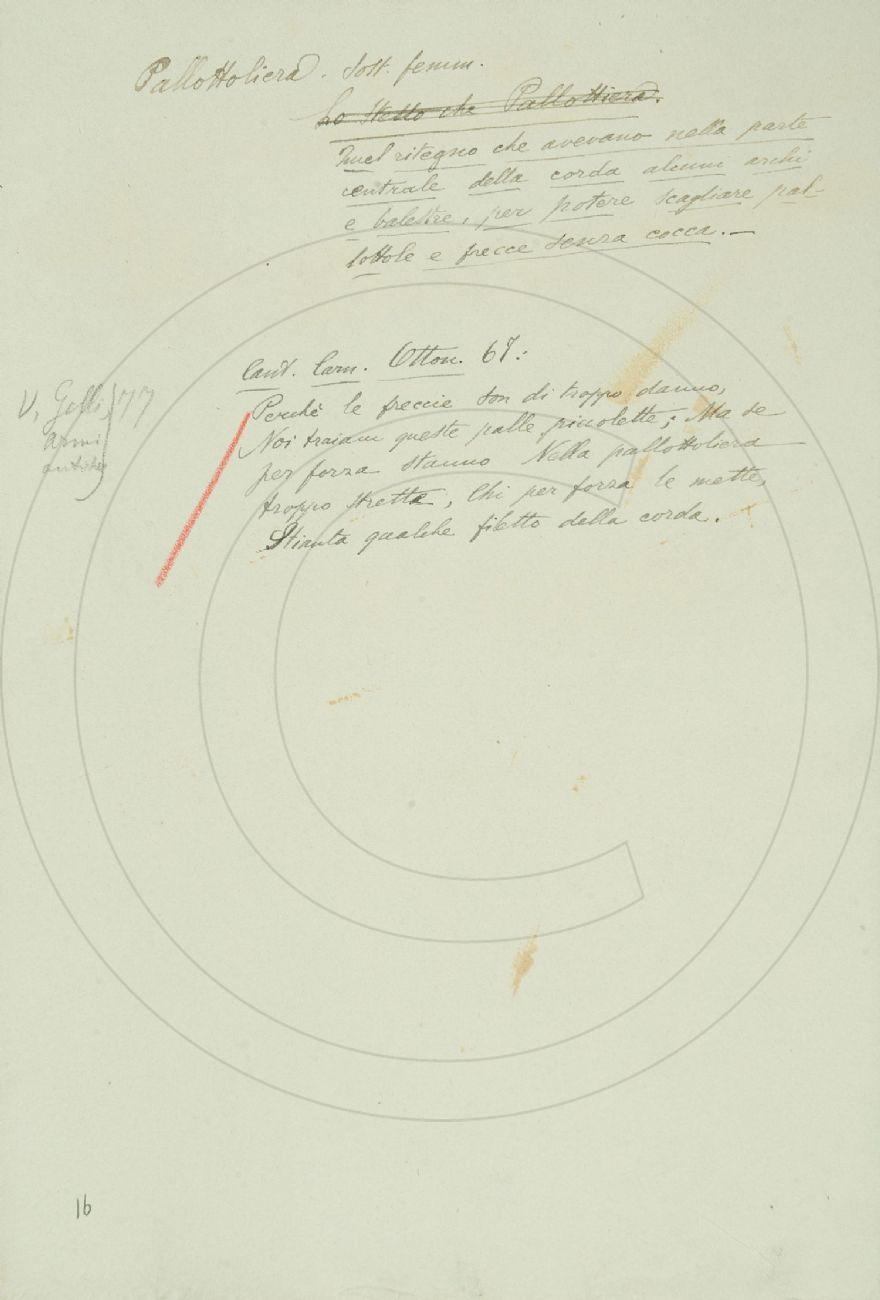 Pallottoliera. Sost. femm.
Lo stesso che Pallottiera.
Quel ritegno che avevano nella parte
centrale della corda alcuni archi
e balestre, per potere scagliare pal-
lottole e frecce senza cocca.—
Cant. Carn. Otton. 67:
Perchè le freccie son di troppo danno,
Noi traiam queste palle piccolette; Ma se
per forza stanno Nella pallottoliera
troppo stretta, Chi per forza le mette,
Stianta qualche filetto della corda.
V. Gelli, 77
armi
antiche
16